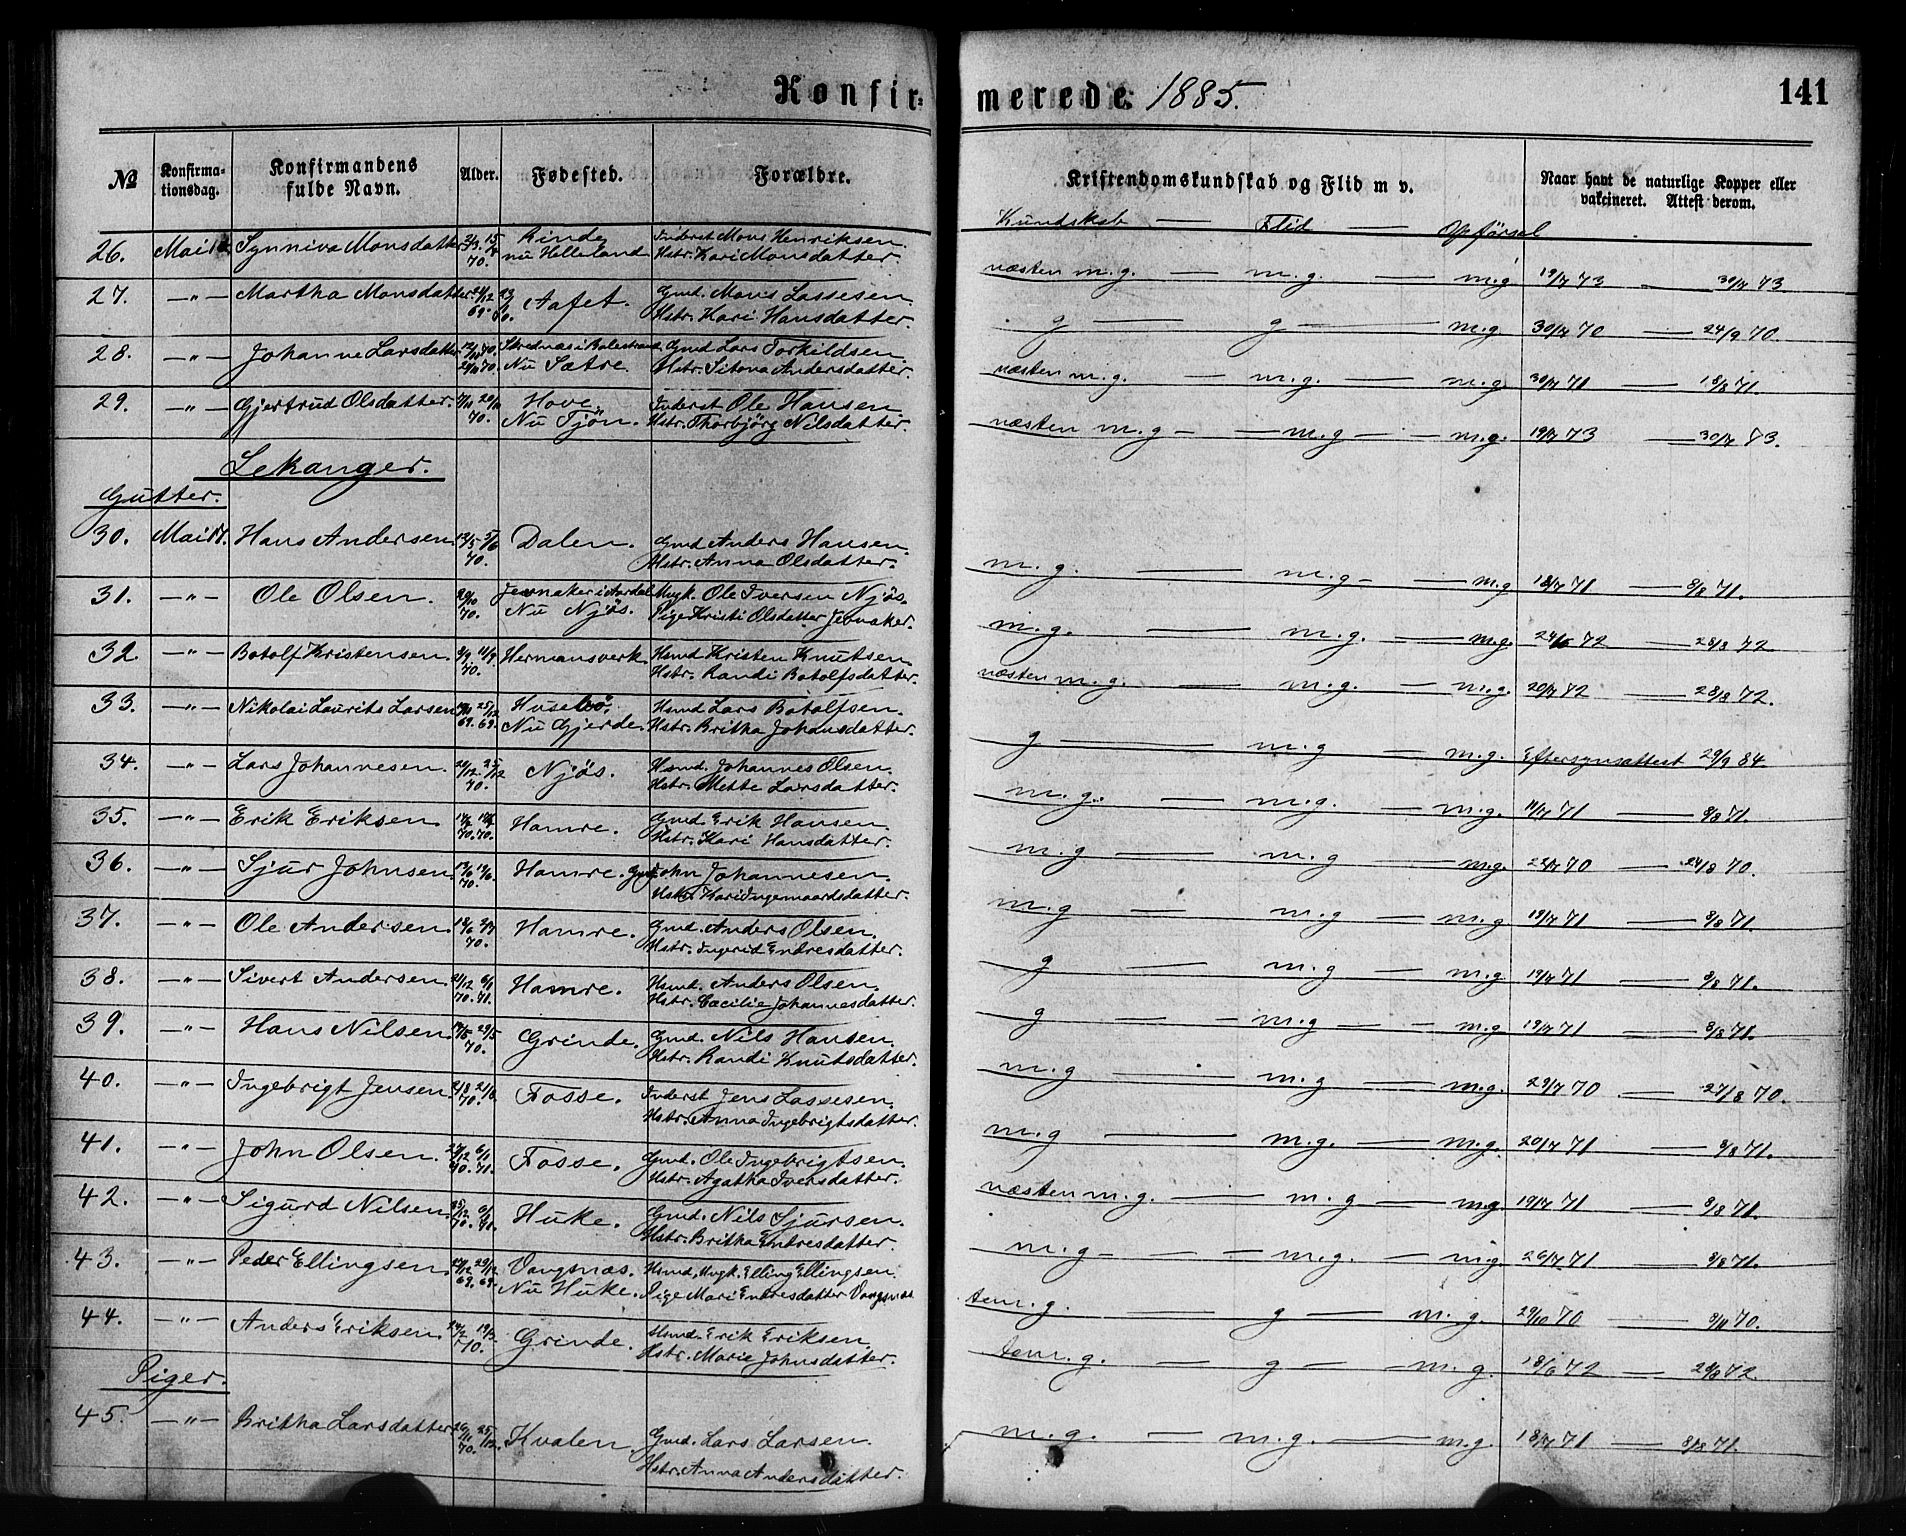 Konfir- merede. 1885. 141
№ Konfirma- Konfirmandens Alder. Fødested. Forældre. Kristendomskundskab og Flid m v. Naar havt de naturlige Kopper eller
tionsdag. fulde Navn. vakcineret. Attest derom.
Kundskab — Flid — Opførsel
26. Synniva Monsdatter 70. Rinde nu Helleland Inderst Mons Henriksen. Hstr. Kari Monsdatter. næsten m.g. — m.g. — m.g 19/7 73 30/7 73
27. —"— Martha Monsdatter 69. Aafet. Gmd. Mons Lassesen. Hstr. Kari Hansdatter. g — g — m.g 30/7 70 — 24/9 70.
28. —"— Johanne Larsdatter Nu Sætre Gmd Lars Torkildsen. Hstr. Sitona Andersdatter. næsten m.g. — m.g. — m.g. 30/7 71 — 18/8 71.
29. —"— Gjertrud Olsdatter. 70. Hove Nu Tjøn. Inderst Ole Hansen. Hstr. Thorbjörg Nilsdatter. næsten m.g — m.g — m.g. 19/7 73 — 30/7 83.
Lekanger.
Gutter.
30. Mai 17. Hans Andersen 12/5 5/6 70. Dalen. Gmd Anders Hansen. Hstr. Anna Olsdatter. m.g. — m.g — m.g 18/7 71 — 8/8 71.
31. —"— Ole Olsen. 70. Jevnaker i Aardal Nu Njøs. Ungk. Ole Iversen Njøs. Pige Kristi Olsdatter Jevnaker. m.g. — m.g. — m.g. 24/6 72 — 28/8 72
32. —"— Botolf Kristensen 3/9 11/9 70. Hermansverk Hsmd Kristen Knutsen. Hstr. Randi Botolfsdatter. næsten m.g. — m.g. — m.g. 20/7 72 — 28/8 72.
33. —"— Nikolai Laurits Larsen 69. 69. Husebö. Nu Gjerde. Hsmd Lars Botolfsen. Hstr. Britha Johansdatter. g — m.g — m.g. Eftersynsattest 29/9 84.
34. —"— Lars Johannesen. 20/12 25/12 70. Njøs. Hsmd. Johannes Olsen. Hstr. Mette Larsdatter. m.g. — m.g. — m.g. 11/7 71 — 8/8 71.
35. —"— Erik Eriksen 70. 70. Hamre. Gmd. Erik Hansen. Hstr. Kari Hansdatter. m.g — m.g — m.g. 22/7 70 — 24/8 70.
36. —"— Sjur Johnsen 70. Hamre. Gmd John Johannesen. Hstr. Kari Ingemaardsdatter. m.g — m.g — m.g 19/7 71 — 8/8 71.
37. —"— Ole Andersen 70. Hamre. Gmd. Anders Olsen. Hstr. Ingerid Endresdatter. g — m.g — m.g 19/7 71 — 8/8 71.
38. —"— Sivert Andersen 21/12 6/1 70. 71. Hamre. Hsmd. Anders Olsen. Hstr. Cæcilie Johannesdatter. g — m.g — m.g 19/7 71 — 8/8 71.
39. —"— Hans Nilsen 29/5 70. Grinde. Gmd. Nils Hansen. Hstr. Randi Knutsdatter. m.g — m.g — m.g. 29/7 70 — 27/8 70.
40. —"— Ingebrigt Jensen 2/8 21/8 70. Fosse. Inderst Jens Lassesen. Hstr. Anna Ingebrigtsdatter. m.g — m.g. — m.g. 20/7 71 — 8/8 71.
41. —"— John Olsen 70. 71. Fosse. Gmd. Ole Ingebrigtsen. Hstr. Agatha Iversdatter. næsten m.g. — m.g — m.g 19/7 71 — 8/8 71.
42. —"— Sigurd Nilsen 70. Huke. Gmd. Nils Sjursen. Hstr. Britha Endresdatter. m.g — m.g. — m.g. 26/7 71 — 8/8 71.
43. —"— Peder Ellingsen 69. 69. Vangsnæs. Nu Huke. Hsmd, Ungk. Elling Ellingsen. Pige Mari Endresdatter Vangsnæs tem.g. — g — m.g. 29/10 70 — 3/11 70.
44. —"— Anders Eriksen 19/3 70. Grinde. Hsmd. Erik Eriksen. Hstr. Marie Johnsdatter. tem.g. — g — m.g. 18/6 72 — 72.
Piger.
45. —"— Britha Larsdatter 26/11 25/12 70. Kvalen Gmd. Lars Larsen. Hstr. Anna Andersdatter. m.g. — m.g. — m.g. 18/7 71 — 8/8 71.